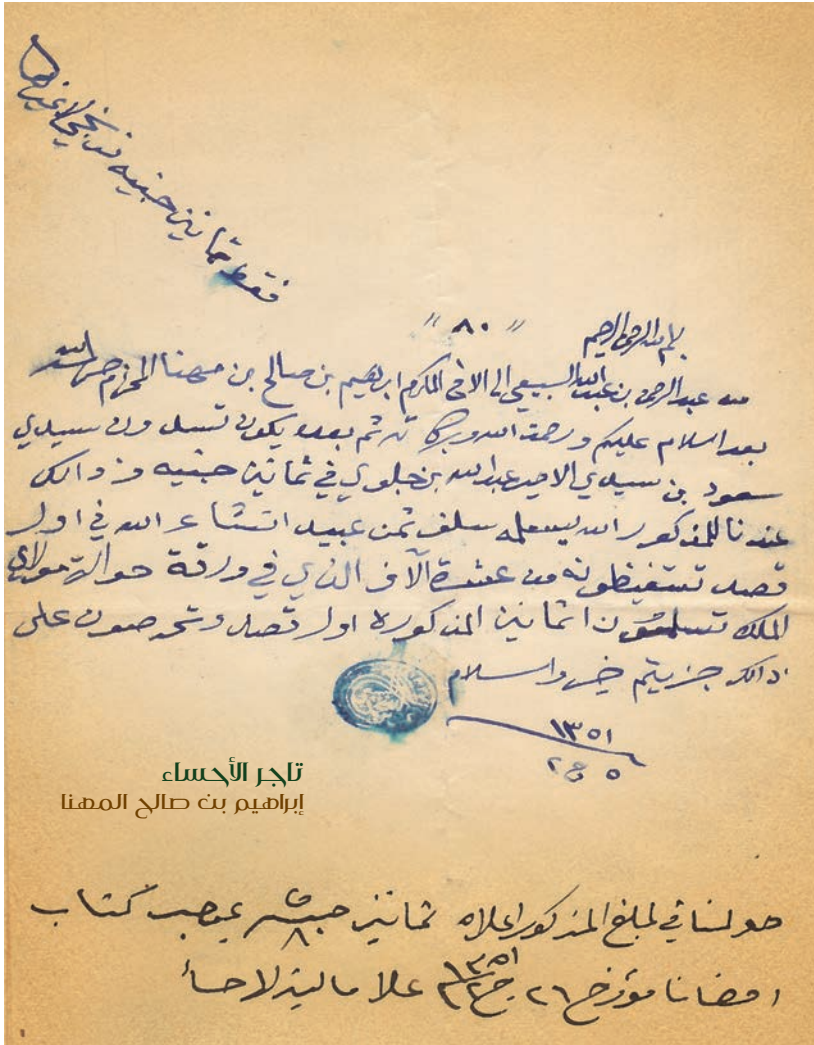 فقط ثمانين جنيه لا غيرها
" ٨٠ "
بسم الله الرحمن الرحيم
من عبدالرحمن بن عبدالله السبيعي الى الاخ المكرم ابرهيم بن صالح بن مهنا المحترم حرسه الله
بعد اسلام عليكم ورحمة الله وبركاته ثم بعد يكون تسلمون سيدي
سعود بن سيدي الامير عبدالله بن جلوي في ثمانين جنيه وذالك
عندنا للمذكور الله يسلمه سلف ثمن عبيد انشاء الله في اول
قصد تستقيظونه من عشرة آلاف الذي في ورقة حوالة مولاي
الملك تسلمون اثمانين المذكوره اول قصد وتحرصون على
ذالك جزيتم خير واسلام
١٣٥١
٥ ج ٢
تاجر الأحساء
إبراهيم بن صالح المهنا
حولنا في لمبلغ المذكور اعلاه ثمانين جنيه ٨٠ بموجب كتاب
امضانا مؤرخ ٢٦ ج ٢ ١٣٥١ علا مالية لاحسأ